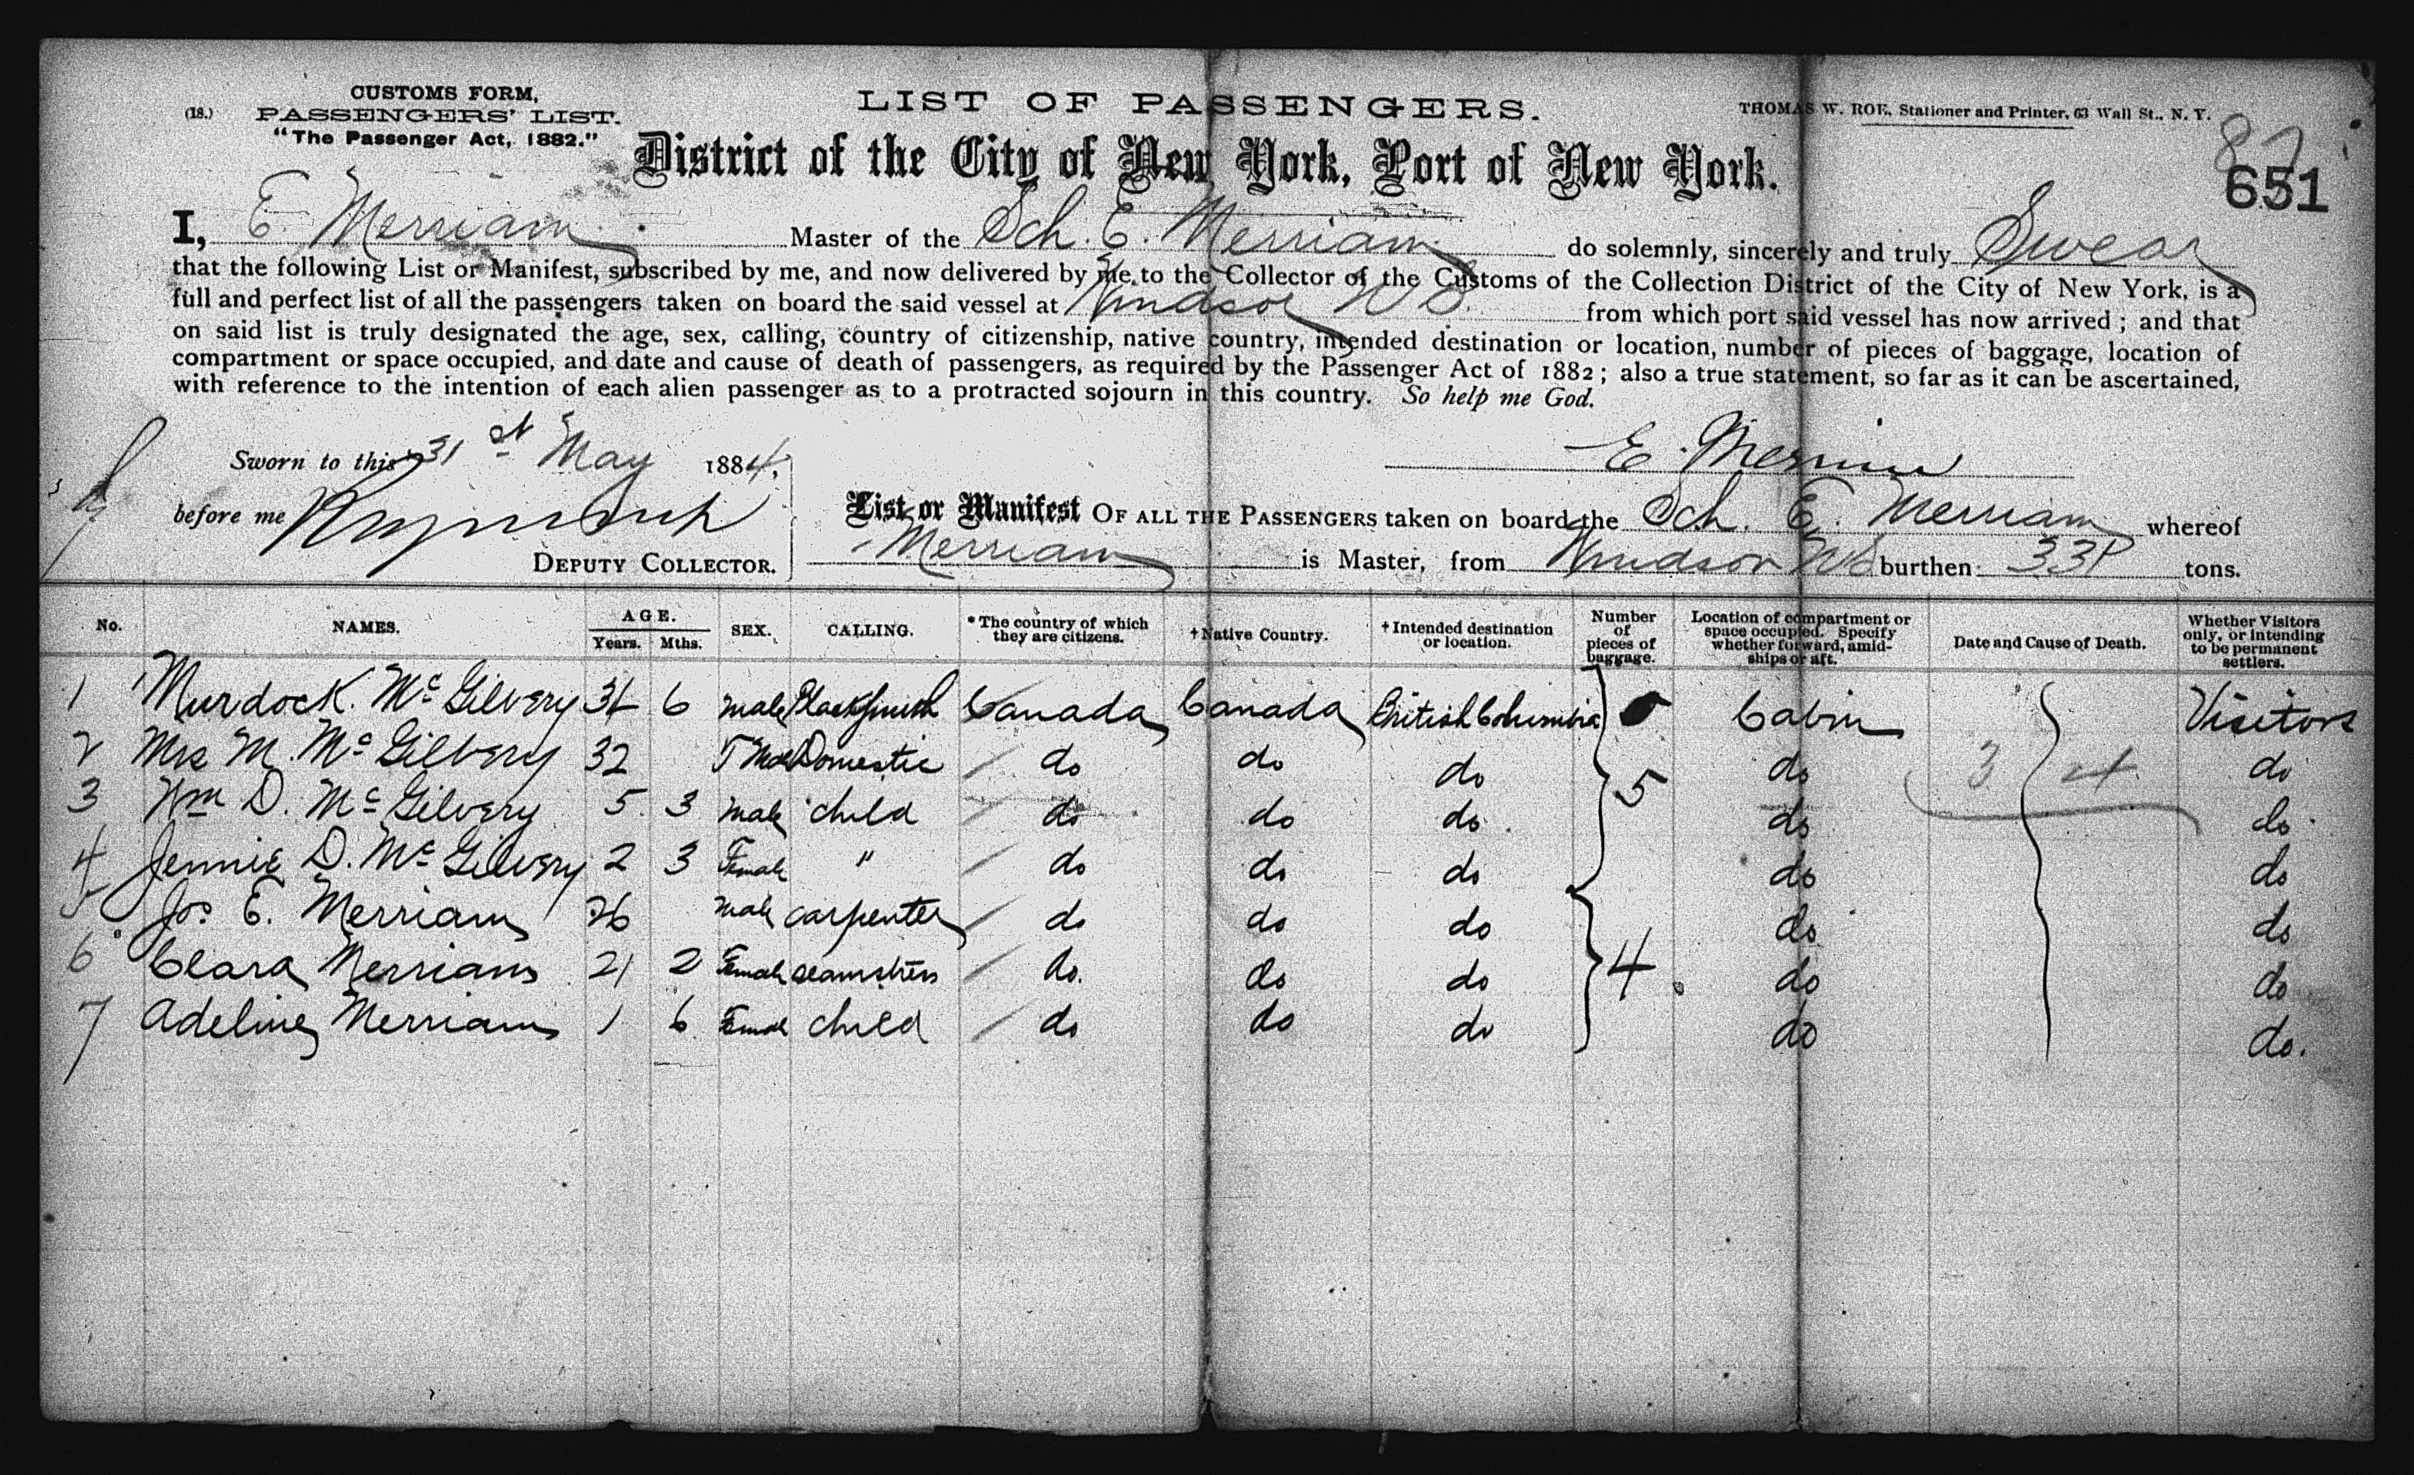 CUSTOMS FORM,
(18.) PASSENGERS' LIST.
"The Passenger Act, 1882."
LIST OF PASSENGERS.
THOMAS W. ROE, Stationer and Printer, 63 Wall St., N. Y.
District of the City of New York, Port of New York.
87
651
I, E. Merriam Master of the Sch. E. Merriam do solemnly, sincerely and truly Swear
that the following List or Manifest, subscribed by me, and now delivered by me to the Collector of the Customs of the Collection District of the City of New York, is a
full and perfect list of all the passengers taken on board the said vessel at Windsor N S. from which port said vessel has now arrived; and that
on said list is truly designated the age, sex, calling, country of citizenship, native country, intended destination or location, number of pieces of baggage, location of
compartment or space occupied, and date and cause of death of passengers, as required by the Passenger Act of 1882; also a true statement, so far as it can be ascertained,
with reference to the intention of each alien passenger as to a protracted sojourn in this country. So help me God.
Sworn to this 31st May 1884,
E. Merriam
before me
DEPUTY COLLECTOR.
List or Manifest OF ALL THE PASSENGERS taken on board the Sch. E. Merriam whereof
Merriam is Master, from Windsor NS burthen 331 tons.
No. NAMES. AGE. Years. Mths. SEX. CALLING. *The country of which they are citizens. †Native Country. †Intended destination or location. Number of pieces of baggage. Location of compartment or space occupied. Specify whether forward, amidships or aft. Date and Cause of Death. Whether Visitors only, or intending to be permanent settlers.
1 Murdock. Mc Gilvery 36 6 male Blacksmith Canada Canada British Columbia Cabin Visitors
2 Mrs M. Mc Gilvery 32 Female Domestic do do do 5 do 3 4 do
3 Wm D. Mc Gilvery 5 3 male child do do do do do
4 Jennie D. Mc Gilvery 2 3 Female " do do do do do
5 Jos E. Merriam 26 male carpenter do do do do do
6 Clara Merriam 21 2 Female seamstress do. do do 4 do do
7 Adeline Merriam 1 6 Female child do do do do do.